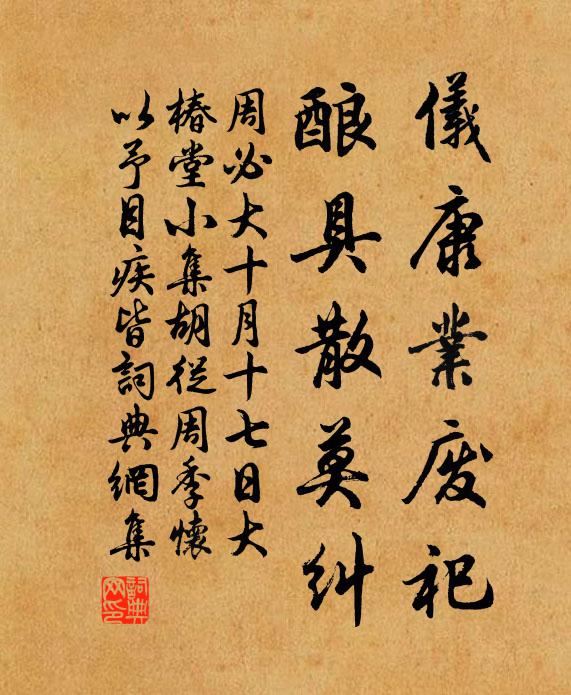 儀康業废祀
酿具散莫纠
周必大十月十七日大
椿堂小集胡從周季懷
以予目疾皆詞典網集
詞典网印